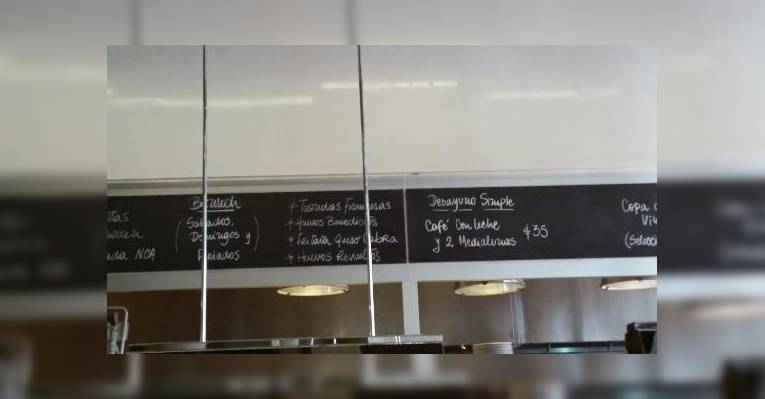 NOA
Brunch
(Sábados,
Domingos y
Feriados)
* Tostadas Francesas
* Huevos Benedictos
* Feitata Queso Cabra
* Huevos Revueltos
Desayuno Simple
Café Con Leche
y 2 Medialunas $35
Copa